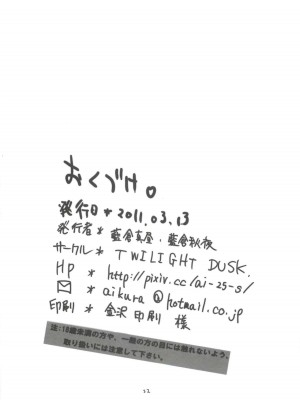 おくづけ。
発行日 * 2011.03.13
発行者 * 藍倉真屋・藍倉秋夜
サークル * TWILIGHT DUSK.
HP * http://pixiv.cc/ai-25-s/
✉ * aikura@hotmail.co.jp
印刷 * 金沢印刷 様
注:18歳未満の方や、一般の方の目には触れないよう、
取り扱いには注意して下さい。